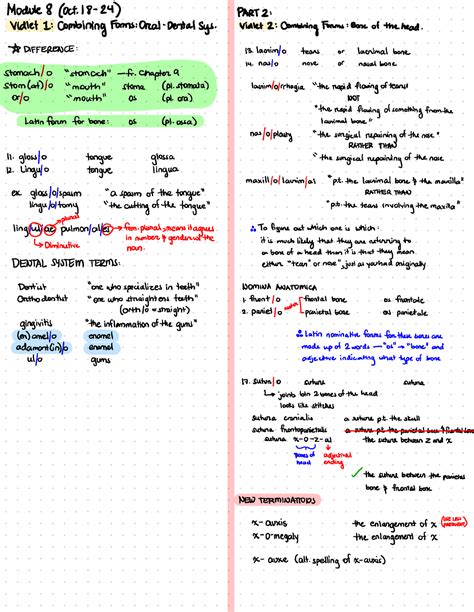 Module 8 (Oct. 18-24)
Vidlet 1: Combining Forms: Oral-Dental Sys.
☆ DIFFERENCE:
stomach/o "stomach" —fr. Chapter 9
stom(at)/o "mouth" stoma (pl. stomata)
or/o "mouth" os (pl. ora)
Latin form for bone: os (pl. ossa)
11. gloss/o tongue glossa
12. lingu/o tongue lingua
ex gloss/o/spasm "a spasm of the tongue"
lingu/o/tomy "the cutting of the tongue"
plural
ling/ul/ae pulmon/al/es → fem. plural, means it agrees
in number & gender w/ the
noun.
↳ Diminutive
DENTAL SYSTEM TERMS:
Dentist "one who specializes in teeth"
Orthodontist "one who straightens teeth"
(orth/o = straight)
gingivitis "the inflammation of the gums"
(en)amel/o enamel
adamant(in)/o enamel
ul/o gums
PART 2:
Vidlet 2: Combining Forms: Bone of the head.
13. lacrim/o tears or lacrimal bone
14. nas/o nose or nasal bone
lacrim/o/rrhagia "the rapid flowing of tears"
NOT
"the rapid flowing of something from the
lacrimal bone"
nas/o/plasty "the surgical repairing of the nose"
RATHER THAN
"the surgical repairing of the nose
maxill/o/lacrim/al "pt. the lacrimal bone & the maxilla"
RATHER THAN
"pt. the tears involving the maxilla"
∴ To figure out which one is which:
it is much likely that they are referring to
a bone of a head than it is that they mean
either "tear" or "nose", just as you had originally
NOMINA ANATOMICA
1. front/o frontal bone os frontale
2. pariet/o parietal bone os parietale
∴ Latin nominative forms for these bones are
made up of 2 words — "os" → "bone" and
adjective indicating what type of bone
17. sutur/o suture sutura
↳ joints btn 2 bones of the head
looks like stitches
sutura cranialis a suture pt. the skull
sutura frontoparietalis a suture pt. the parietal bone & frontal bone
sutura x-o-z-al the suture between z and x
bones of head
adjectival ending
✓ the suture between the parietal
bone & frontal bone
NEW TERMINATIONS
x-auxis the enlargement of x
x-o-megaly the enlargement of x
x-auxe (alt. spelling of x-auxis)